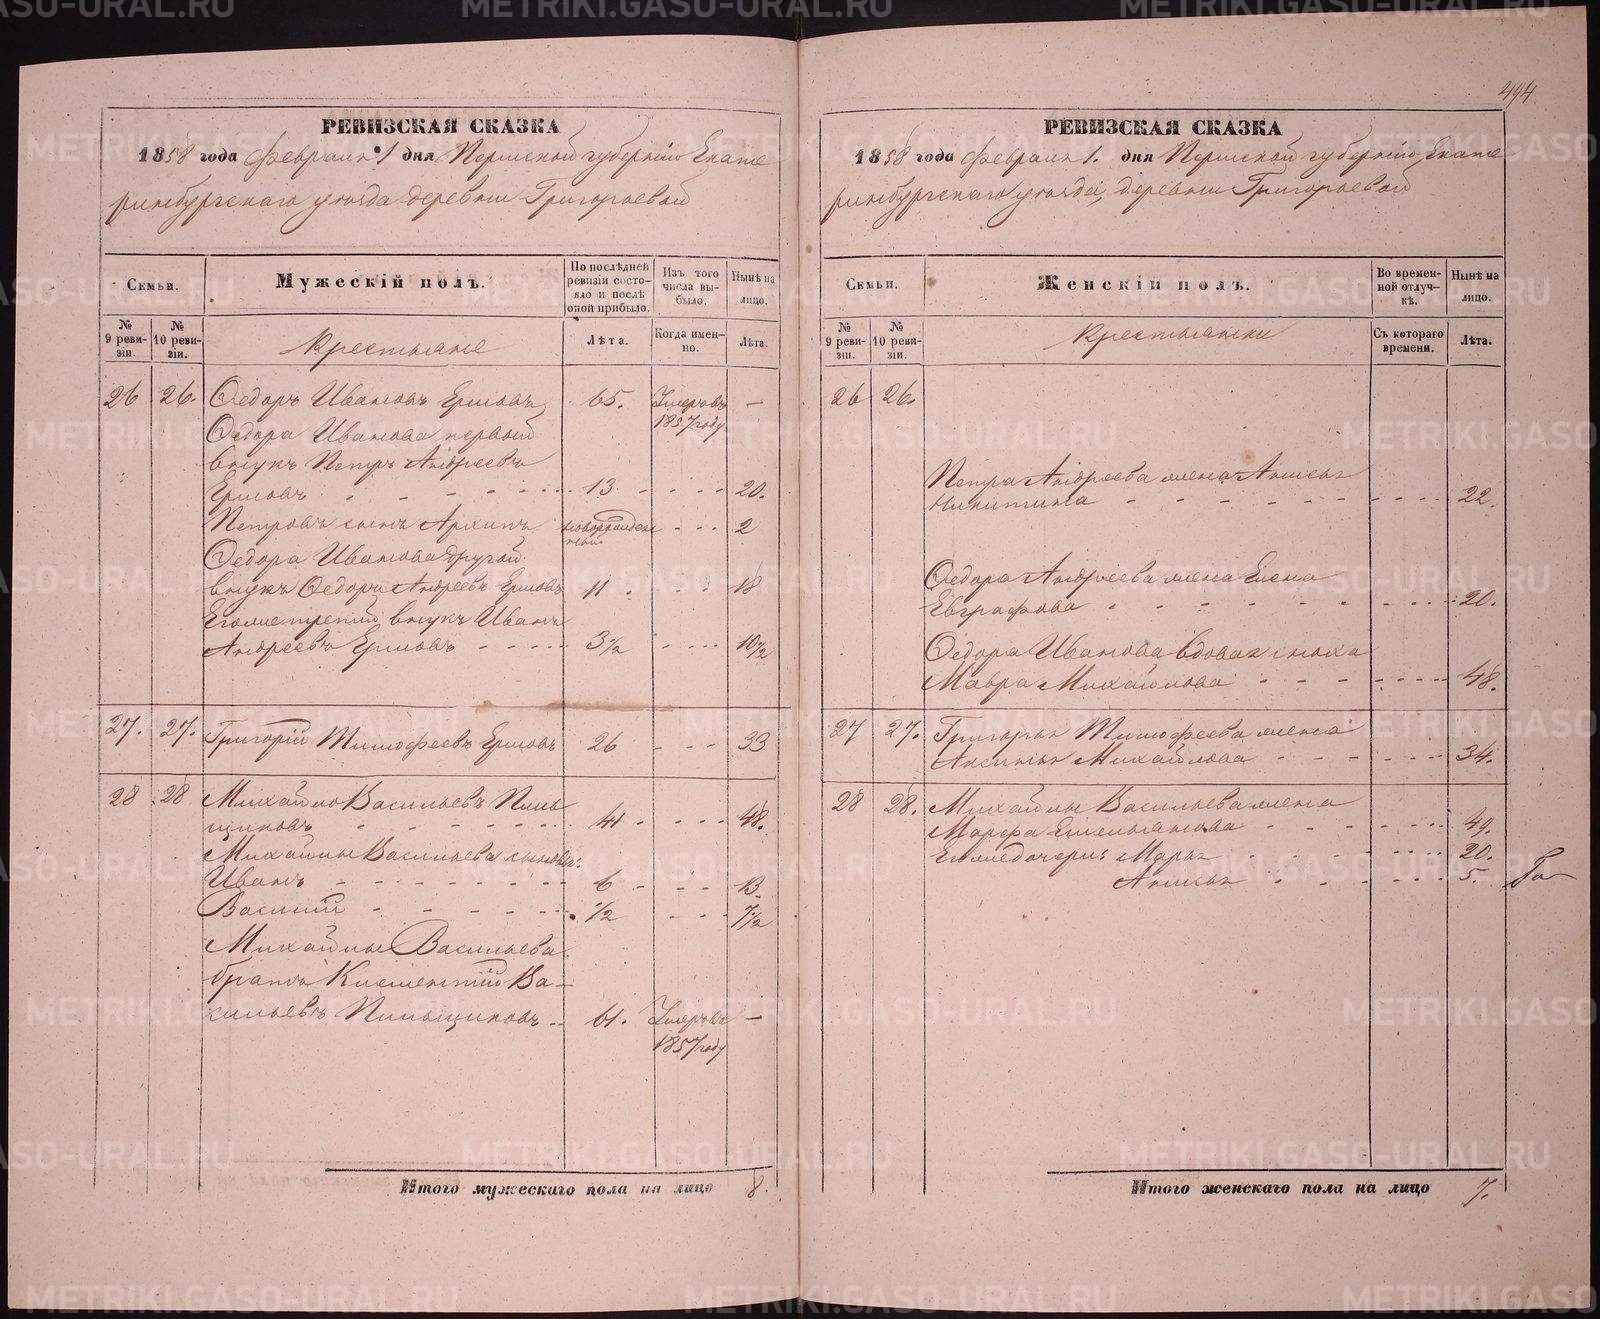 494
РЕВИЗСКАЯ СКАЗКА
1858 года февраля 1 дня Пермской губернiи Екате
ринбургскаго уѣзда деревни Григорьевой
Семьи.
Мужескiй полъ.
По послѣдней ревизiи состояло и послѣ оной прибыло.
Изъ того числа выбыло.
Нынѣ на лицо.
№ 9 ревизiи.
№ 10 ревизiи.
Крестьяне
Лѣта.
Когда именно.
Лѣта.
26 26. Ѳедоръ Ивановъ Ершовъ 65. Умеръ въ 1857 году —
Ѳедора Иванова первый
внукъ Петръ Андреевъ
Ершовъ 13 20.
Петровъ сынъ Архипъ новорожденный 2
Ѳедора Иванова другой
внукъ Ѳедоръ Андреевъ Ершовъ 11 18
Его же третiй внукъ Иванъ
Андреевъ Ершовъ 3½ 10½
27. 27. Григорiй Тимофеевъ Ершовъ 26 33
28 28 Михайло Васильевъ Пиль
щиковъ 41 48.
Михайлы Васильева сыновья:
Иванъ 6 13.
Василiй ½ 7½
Михайлы Васильева
братъ Климентiй Ва-
сильевъ Пильщиковъ 61. Умеръ въ 1857 году —
Итого мужескаго пола на лицо 8.
РЕВИЗСКАЯ СКАЗКА
1858 года февраля 1. дня Пермской губернiи Екате
ринбургскаго уѣзда, деревни Григорьевой
Семьи.
Женскiй полъ.
Во временной отлучкѣ.
Нынѣ на лицо.
№ 9 ревизiи.
№ 10 ревизiи.
Крестьянки
Съ котораго времени.
Лѣта.
26 26.
Петра Андреева жена Анисья
Никитина 22.
Ѳедора Андреева жена Елена
Евграфова 20.
Ѳедора Иванова вдовая сноха
Мавра Михайлова 48.
27 27. Григорья Тимофеева жена
Аксинья Михайлова 34.
28 28. Михайлы Васильева жена
Марфа Емельянова 49.
Его же дочери: Марья 20.
Анисья 5.
Итого женскаго пола на лицо 7.
METRIKI.GASO-URAL.RU